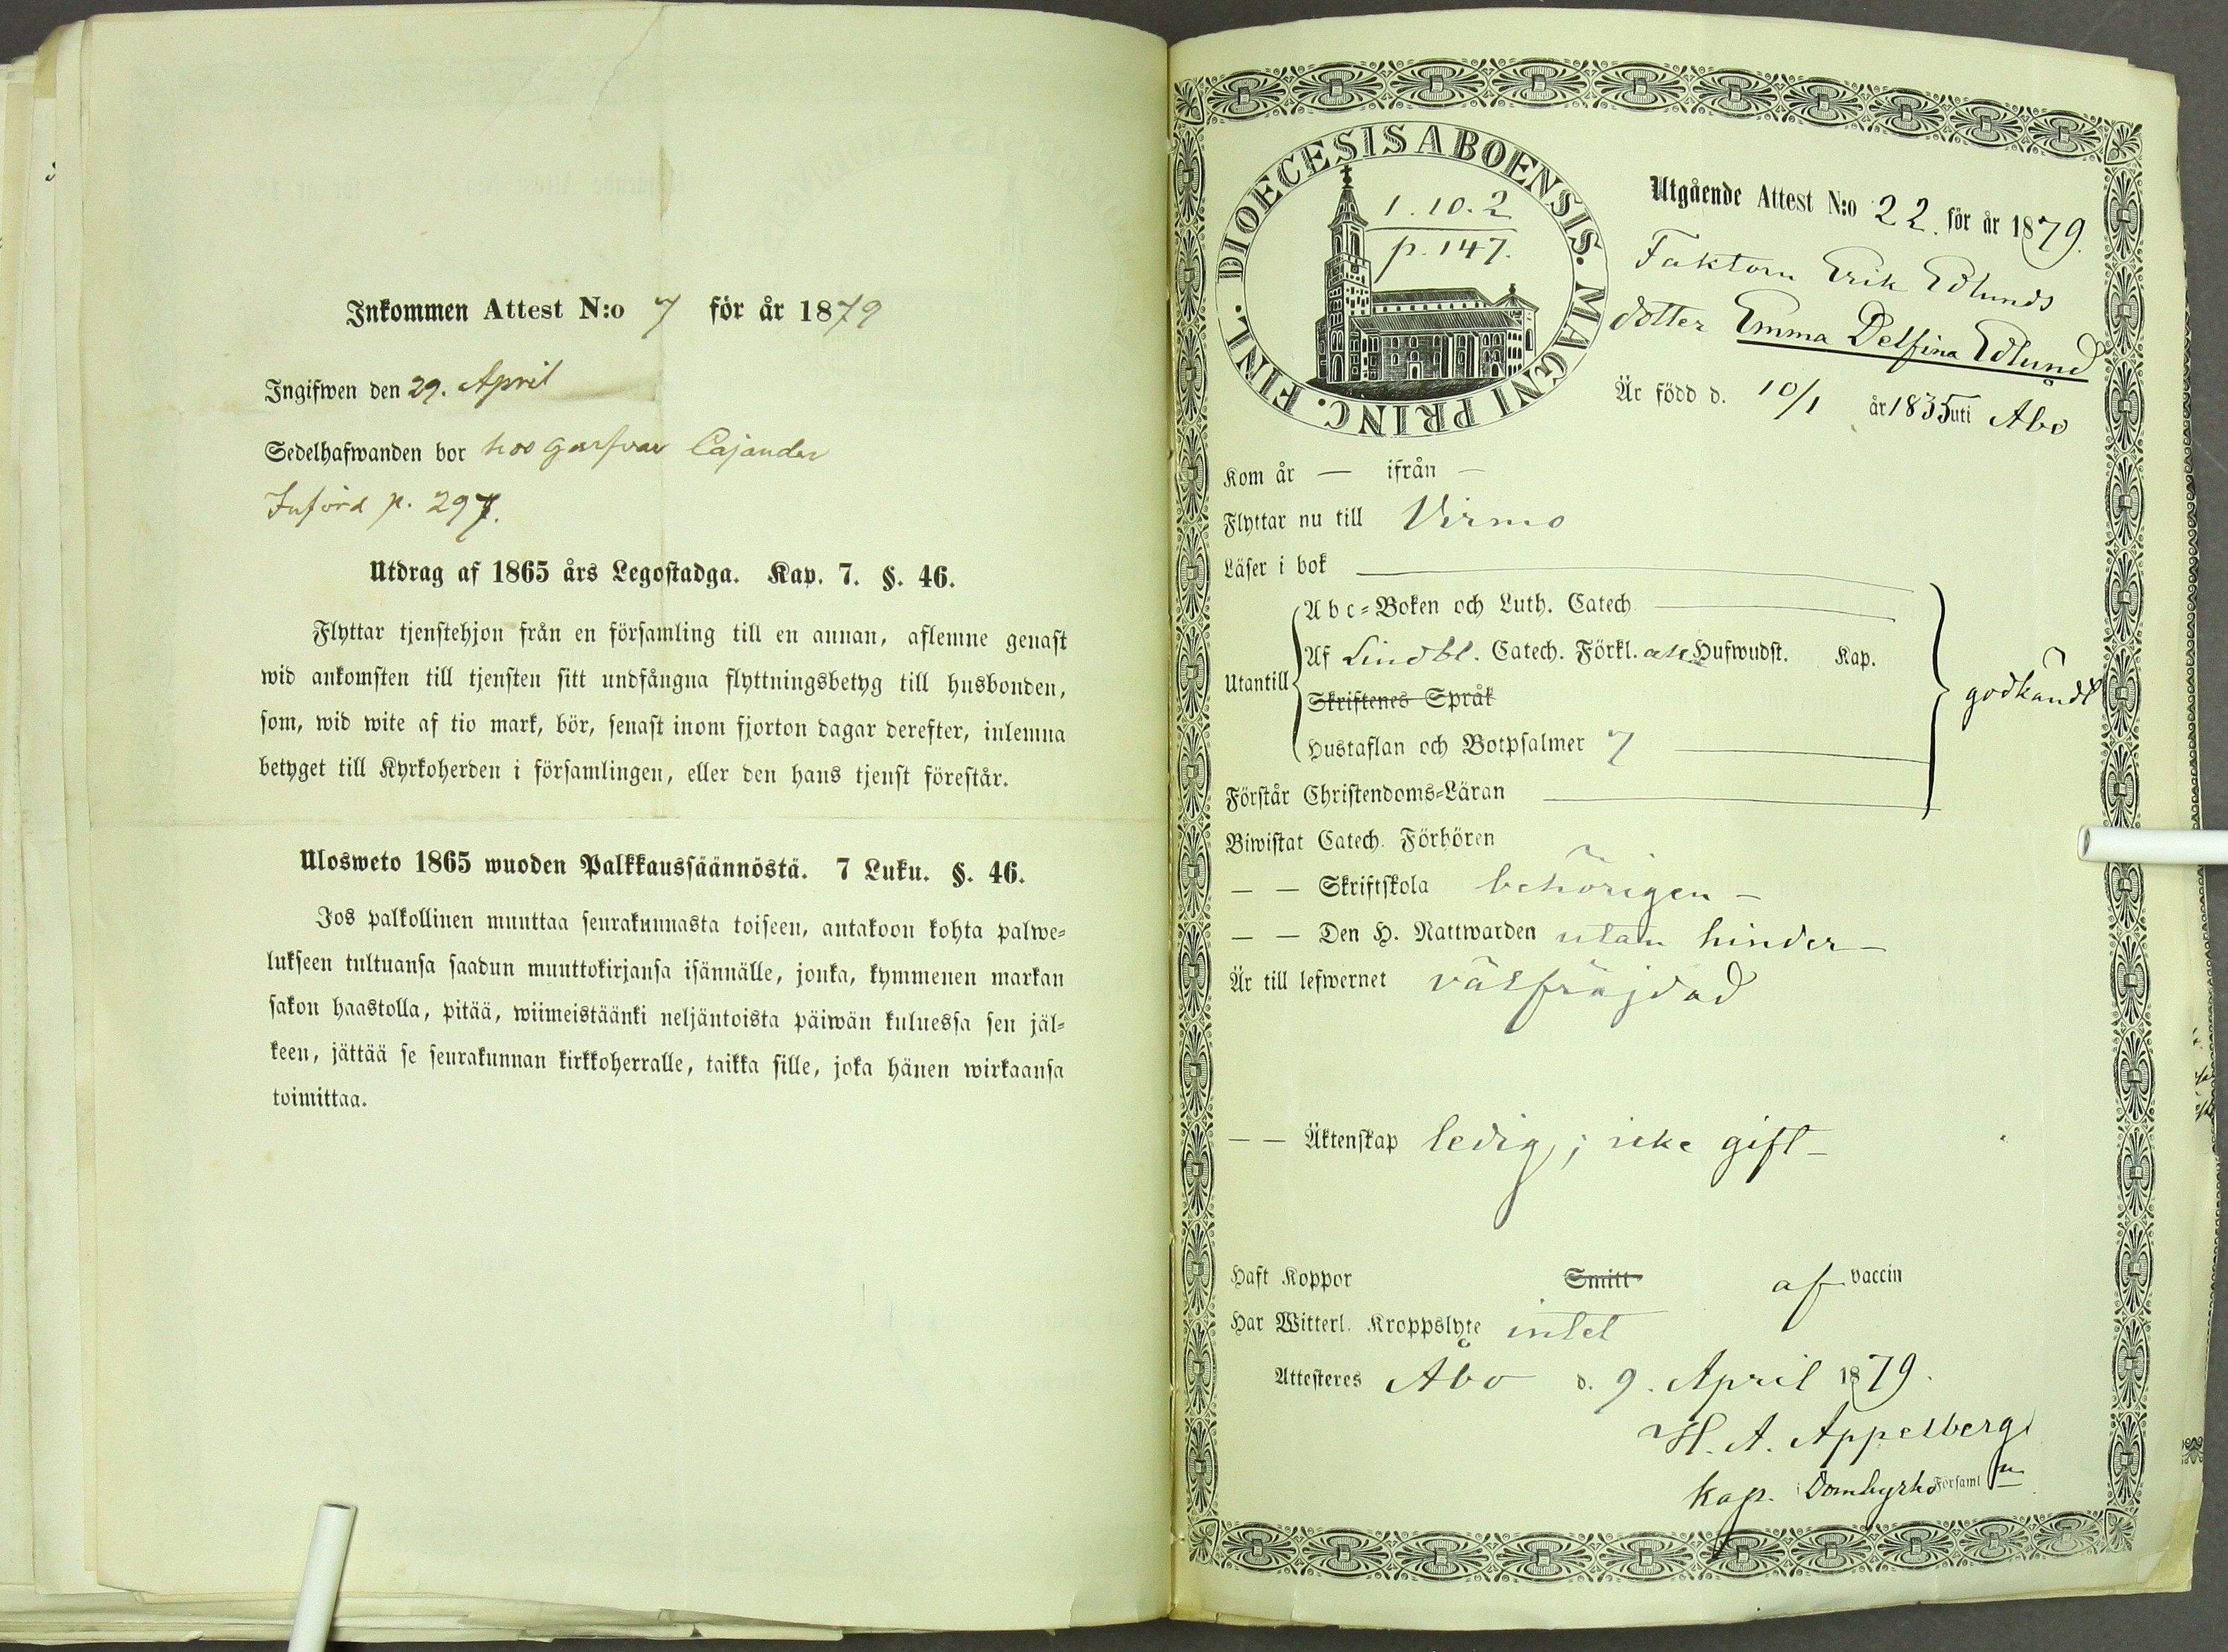 Inkommen Attest N:o 7 för år 1879
Ingifwen den 29. April
Sedelhafwanden bor hos garfvar Cajander
Införd p. 297.
Utdrag af 1865 års Legostadga. Kap. 7. §. 46.
Flyttar tjenstehjon från en församling till en annan, aflemne genast
wid ankomsten till tjensten sitt undfångna flyttningsbetyg till husbonden,
som, wid wite af tio mark, bör, senast inom fjorton dagar derefter, inlemna
betyget till Kyrkoherden i församlingen, eller den hans tjenst förestår.
Ulosweto 1865 wuoden Palkkaussäännöstä. 7 Luku. §. 46.
Jos palkollinen muuttaa seurakunnasta toiseen, antakoon kohta palwe-
lukseen tultuansa saadun muuttokirjansa isännälle, jonka, kymmenen markan
sakon haastolla, pitää, wiimeistäänki neljäntoista päiwän kuluessa sen jäl-
keen, jättää se seurakunnan kirkkoherralle, taikka sille, joka hänen wirkaansa
toimittaa.
DIOECESIS ABOENSIS. MAGNI PRINC. FINL.
1. 10. 2
p. 147.
Utgående Attest N:o 22. för år 1879.
Faktorn Erik Edlunds
dotter Emma Delfina Edlund
Är född d. 10/1 år 1835 uti Åbo
Kom år — ifrån —
Flyttar nu till Virmo
Läser i bok
Utantill
Abc-Boken och Luth. Catech.
Af Lindbl. Catech. Förkl. alla Hufwudst. Kap.
Skriftenes Språk
Hustaflan och Botpsalmer 7
godkändt
Förstår Christendoms-Läran
Biwistat Catech. Förhören
— — Skriftskola behörigen —
— — Den H. Nattwarden utan hinder —
Är till lefwernet välfräjdad
— — Äktenskap ledig; icke gift —
Haft Koppor Smitt af vaccin
Har Witterl. Kroppslyte intet
Attesteres Åbo d. 9. April 1879.
H. A. Appelberg
Kap. i Domkyrko Församl n